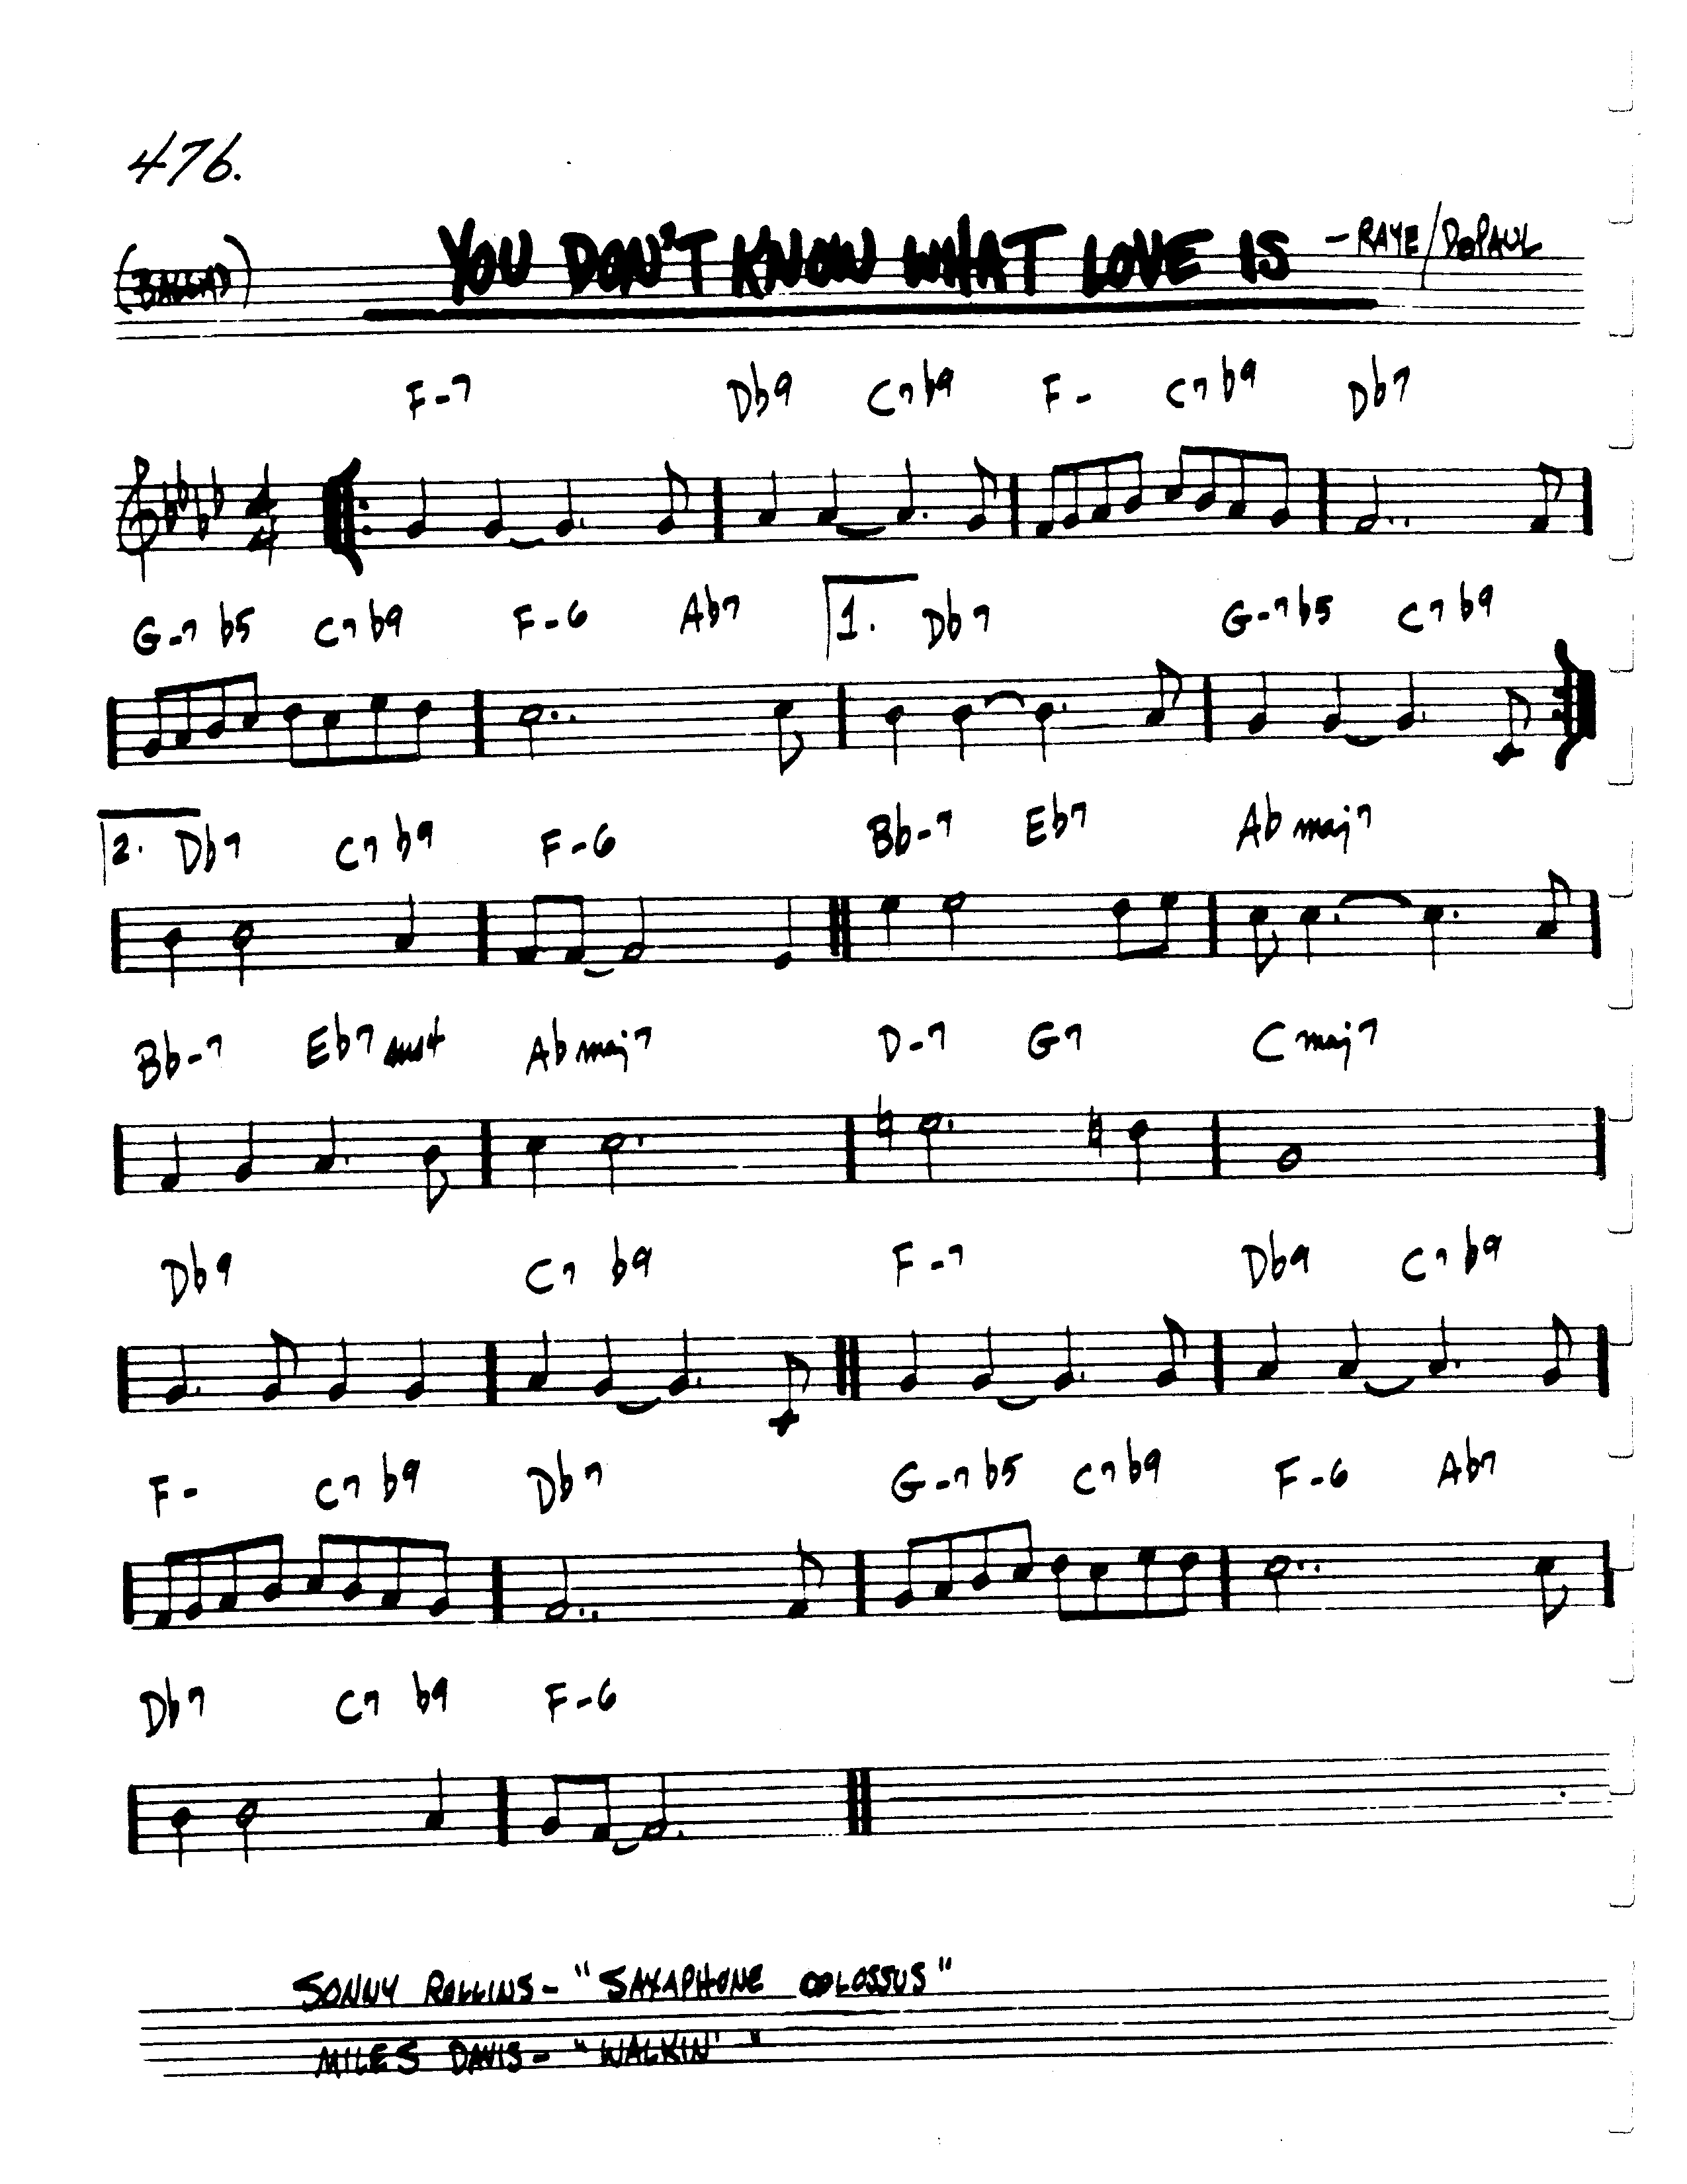 476.
(BALLAD) YOU DON'T KNOW WHAT LOVE IS - RAYE/DEPAUL
F-7 Db9 C7b9 F- C7b9 Db7
4 4
G-7b5 C7b9 F-6 Ab7 1. Db7 G-7b5 C7b9
2. Db7 C7b9 F-6 Bb-7 Eb7 Abmaj7
Bb-7 Eb7sus4 Abmaj7 D-7 G7 Cmaj7
Db9 C7b9 F-7 Db9 C7b9
F- C7b9 Db7 G-7b5 C7b9 F-6 Ab7
Db7 C7b9 F-6
SONNY ROLLINS - "SAXAPHONE COLOSSUS"
MILES DAVIS - "WALKIN'"